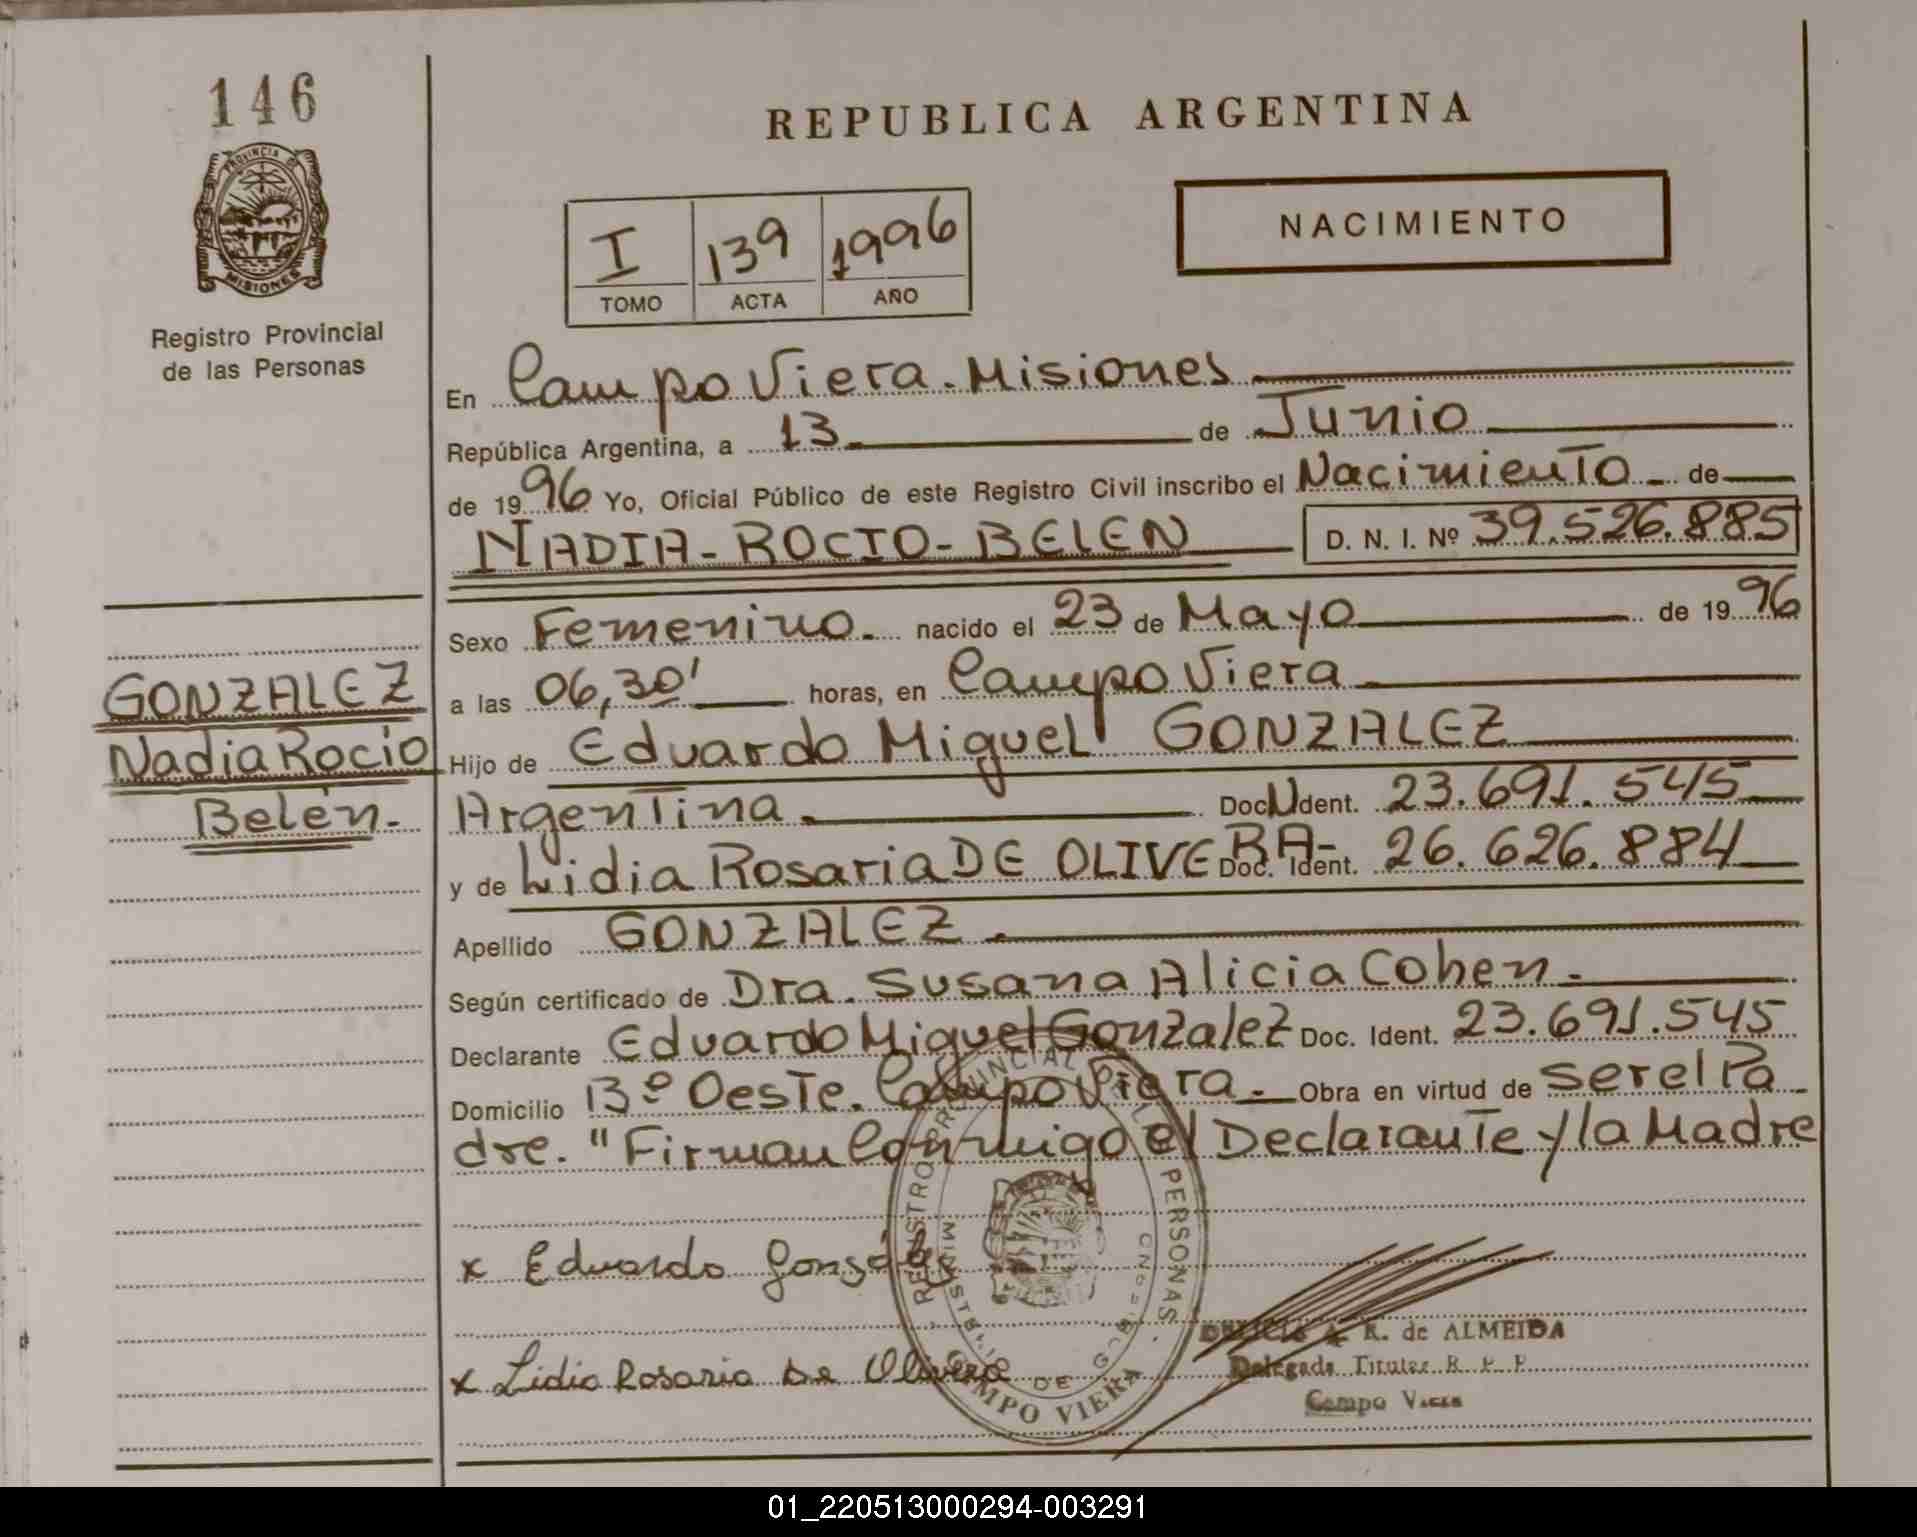 146
PROVINCIA DE
MISIONES
Registro Provincial
de las Personas
REPUBLICA ARGENTINA
I 139 1996
TOMO ACTA AÑO
NACIMIENTO
En Campo Viera. Misiones
República Argentina, a 13 de Junio
de 1996 Yo, Oficial Público de este Registro Civil inscribo el Nacimiento de
NADIA-ROCIO-BELEN D. N. I. Nº 39.526.885
Sexo Femenino. nacido el 23 de Mayo de 1996
a las 06,30' horas, en Campo Viera
Hijo de Eduardo Miguel GONZALEZ
Argentina. Doc. Ident. 23.691.545
y de Lidia Rosaria DE OLIVERA- Doc. Ident. 26.626.884
Apellido GONZALEZ.
Según certificado de Dra. Susana Alicia Cohen.
Declarante Eduardo Miguel Gonzalez Doc. Ident. 23.691.545
Domicilio Bº Oeste. Campo Viera. Obra en virtud de ser el Pa
dre. "Firman Conmigo el Declarante y la Madre
GONZALEZ
Nadia Rocío
Belén.
x Eduardo González
x Lidia Rosaria De Olivera
REGISTRO PROVINCIAL DE LAS PERSONAS
MINISTERIO DE GOBIERNO
CAMPO VIERA
DELICIA A. R. de ALMEIDA
Delegada Titular R. P. P.
Campo Viera
01_220513000294-003291